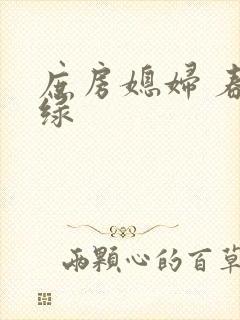 庶房媳婦 春
綠
兩顆心的百草